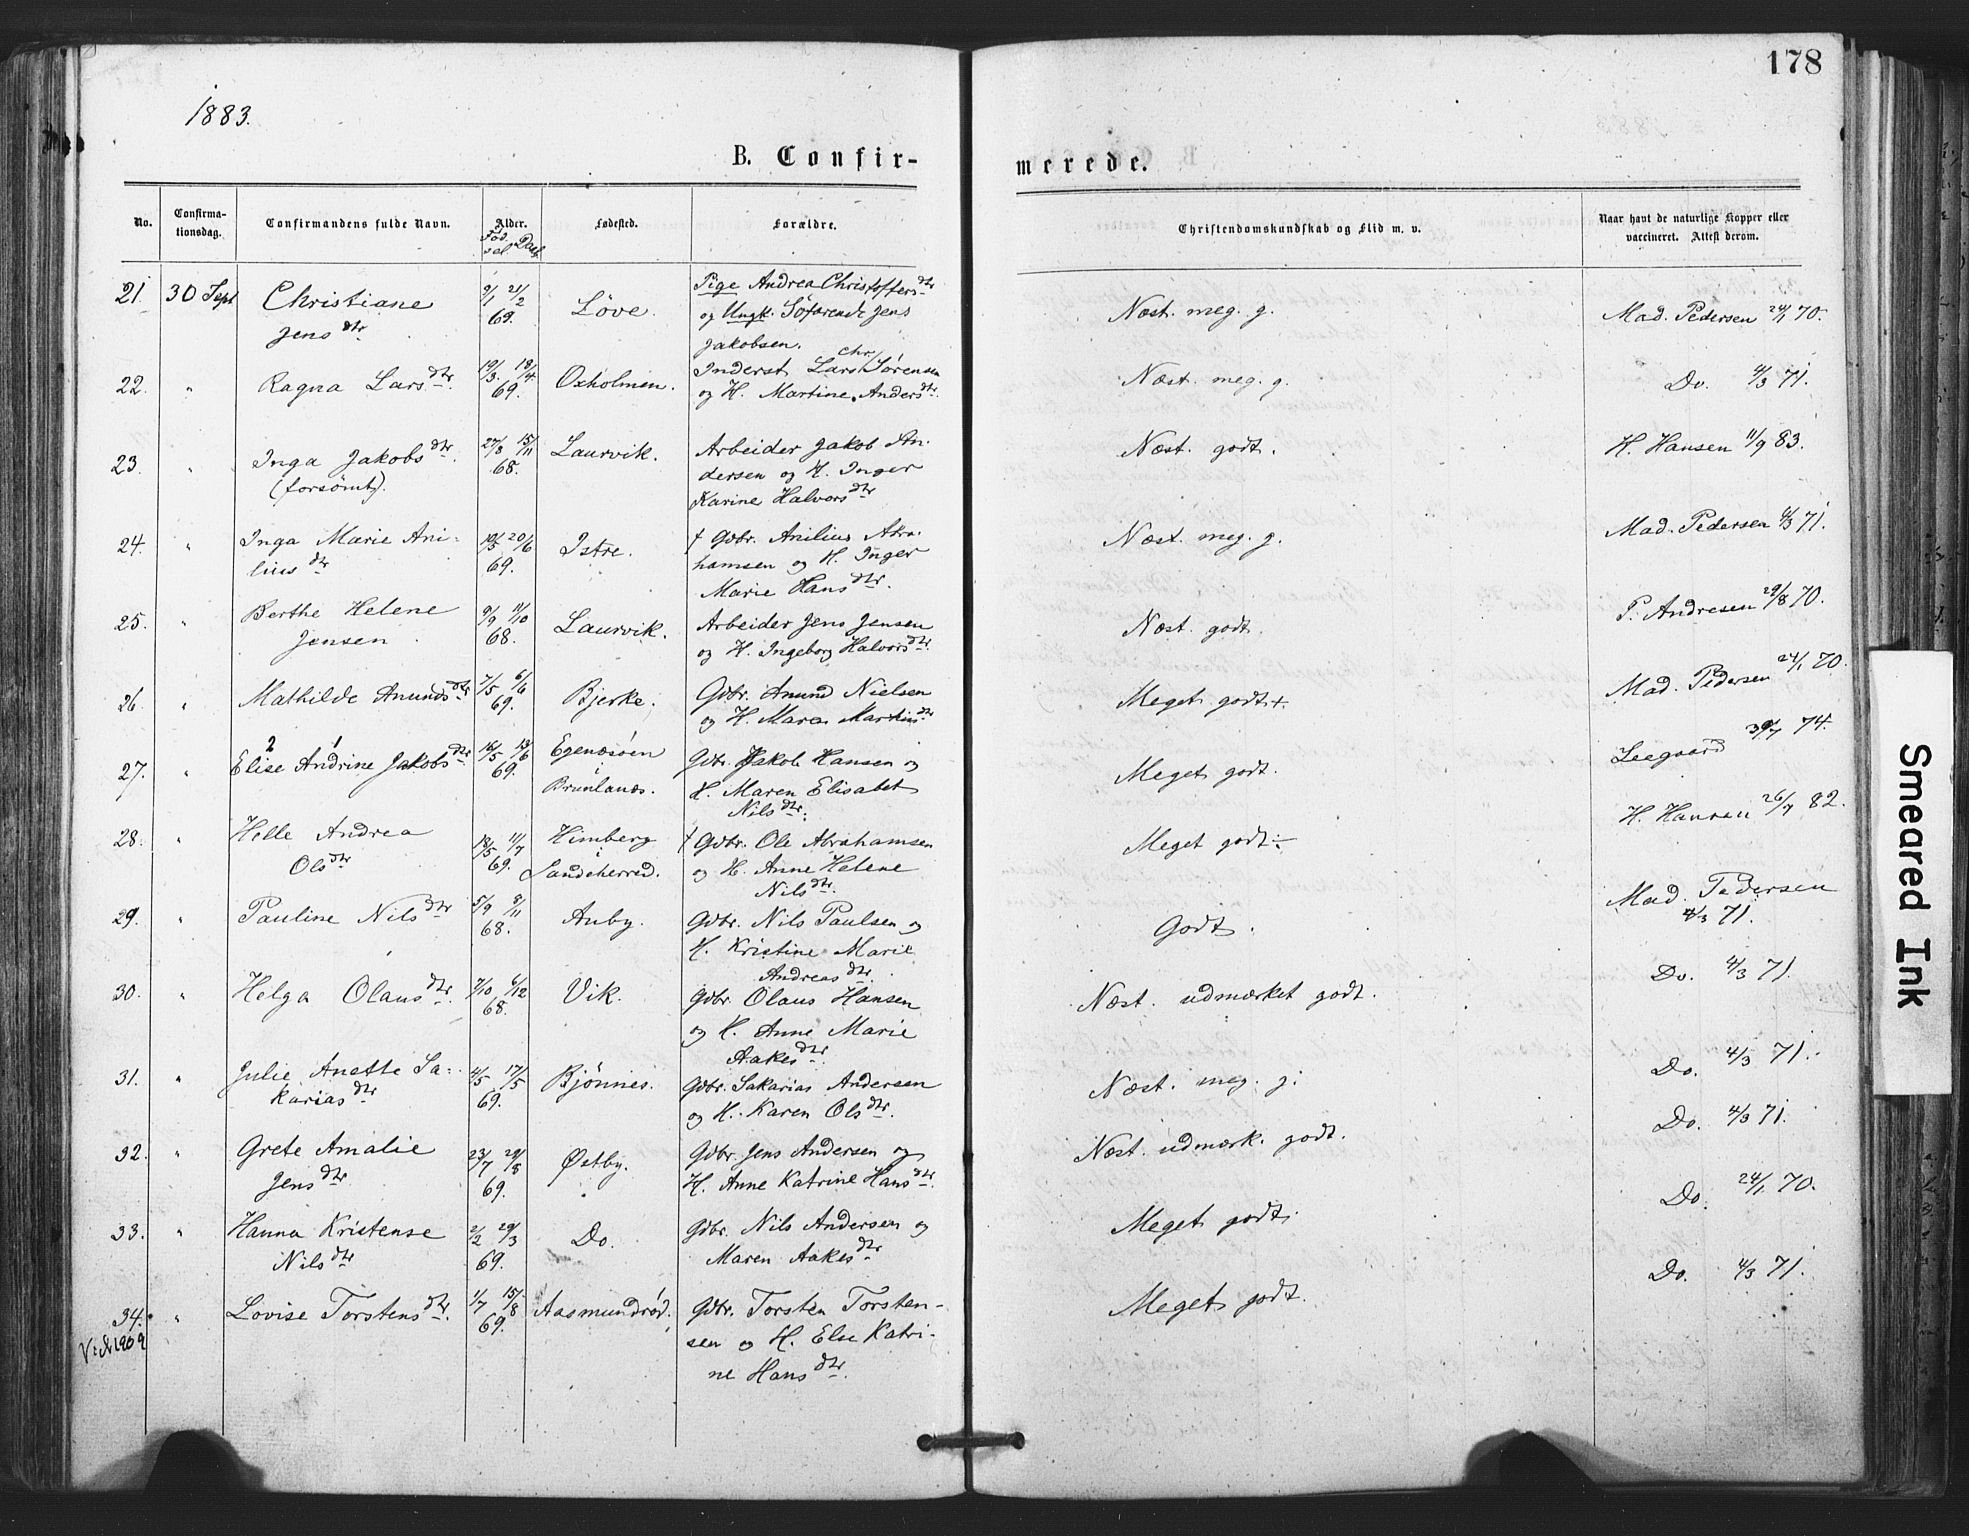 178
1883.
B. Confir-
merede.
No.
Confirma-
tionsdag.
Confirmandens fulde Navn.
Alder.
Fød
sel. Daab
Fødested.
Forældre.
Christendomskundskab og Flid m. v.
Naar havt de naturlige Kopper eller
vaccineret. Attest derom.
21. 30 Sept Christiane 9/1 21/2 Löve. Pige Andrea Christoffersdtr
Jensdtr 69. og Ungk. Söfarende Jens
Jakobsen.
Næst. meg. g. Mad. Pedersen 24/1 70.
22. " Ragna Larsdtr. 19/3 18/4 Oxholmen. Inderst Lars Chr. Sörensen
69. og H. Martine Andersdtr.
Næst. meg. g. Do. 4/3 71.
23. " Inga Jakobsdtr. 27/8 15/11 Laurvik. Arbeider Jakob An-
(forsömt). 68. dersen og H. Inger
Karine Halvorsdtr
Næst. godt. H. Hansen 11/9 83.
24. " Inga Marie Ani- 19/5 20/6 Istre. † Gdbr. Anilius Abra-
liusdtr 69. hamsen og H. Inger
Marie Hansdtr.
Næst. meg. g. Mad. Pedersen 4/3 71.
25. " Berthe Helene 9/9 11/10 Laurvik. Arbeider Jens Jensen
Jensen 68. og H. Ingeborg Halvorsdtr.
Næst. godt. P. Andresen 29/8 70.
26. " Mathilde Anundsdtr. 7/5 6/6 Bjerke. Gdbr. Anund Nielsen
69. og H. Maren Martinsdtr
Meget godt+. Mad. Pedersen 24/1 70.
2 1
27. " Elise Andrine Jakobsdtr. 16/5 13/6 Egenæsöen Gdbr. Jakob Hansen og
69. Brunlanæs. H. Maren Elisabet
Nilsdtr.
Meget godt. Leegaard 74.
28. " Helle Andrea 18/5 11/7 Himberg † Gdbr. Ole Abrahamsen
Olsdtr 69. Sandeherred. og H. Anne Helene
Nilsdtr.
Meget godt÷ H. Hansen 26/7 82.
29. " Pauline Nilsdtr 5/9 8/11 Auby. Gdbr. Nils Paulsen og
68. H. Kristine Marie
Andreasdtr.
Godt. Mad. Pedersen
4/3 71.
30. " Helga Olausdtr. 7/10 6/12 Vik. Gdbr. Olaus Hansen
68. og H. Anne Marie
Aakesdtr.
Næst. udmærket godt. Do. 4/3 71.
31. " Julie Anette Sa- 4/5 17/5 Bjönnes. Gdbr. Sakarias Andersen
kariasdtr 69. og H. Karen Olsdtr.
Næst. meg. g. Do. 4/3 71.
32. " Grete Amalie 23/7 29/8 Østby. Gdbr. Jens Andersen og
Jensdtr 69. H. Anne Katrine Hansdtr.
Næst. udmærk. godt. Do. 4/3 71.
33. " Hanna Kristense 2/2 29/3 Do. Gdbr. Nils Andersen og
Nilsdtr 69. Maren Aakesdtr
Meget godt. Do. 24/1 70.
34. " Lovise Torstensdtr. 1/7 15/8 Aasmundröd. Gdbr. Torsten Torsten-
69. sen og H. Else Katri-
ne Hansdtr.
Meget godt. Do. 4/3 71.
1909
Smeared Ink